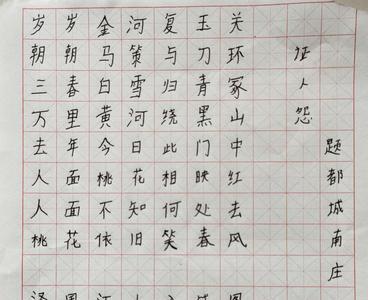 征人怨
岁岁金河复玉关
朝朝马策与刀环
三春白雪归青冢
万里黄河绕黑山
题都城南庄
去年今日此门中
人面桃花相映红
人面不知何处去
桃花依旧笑春风